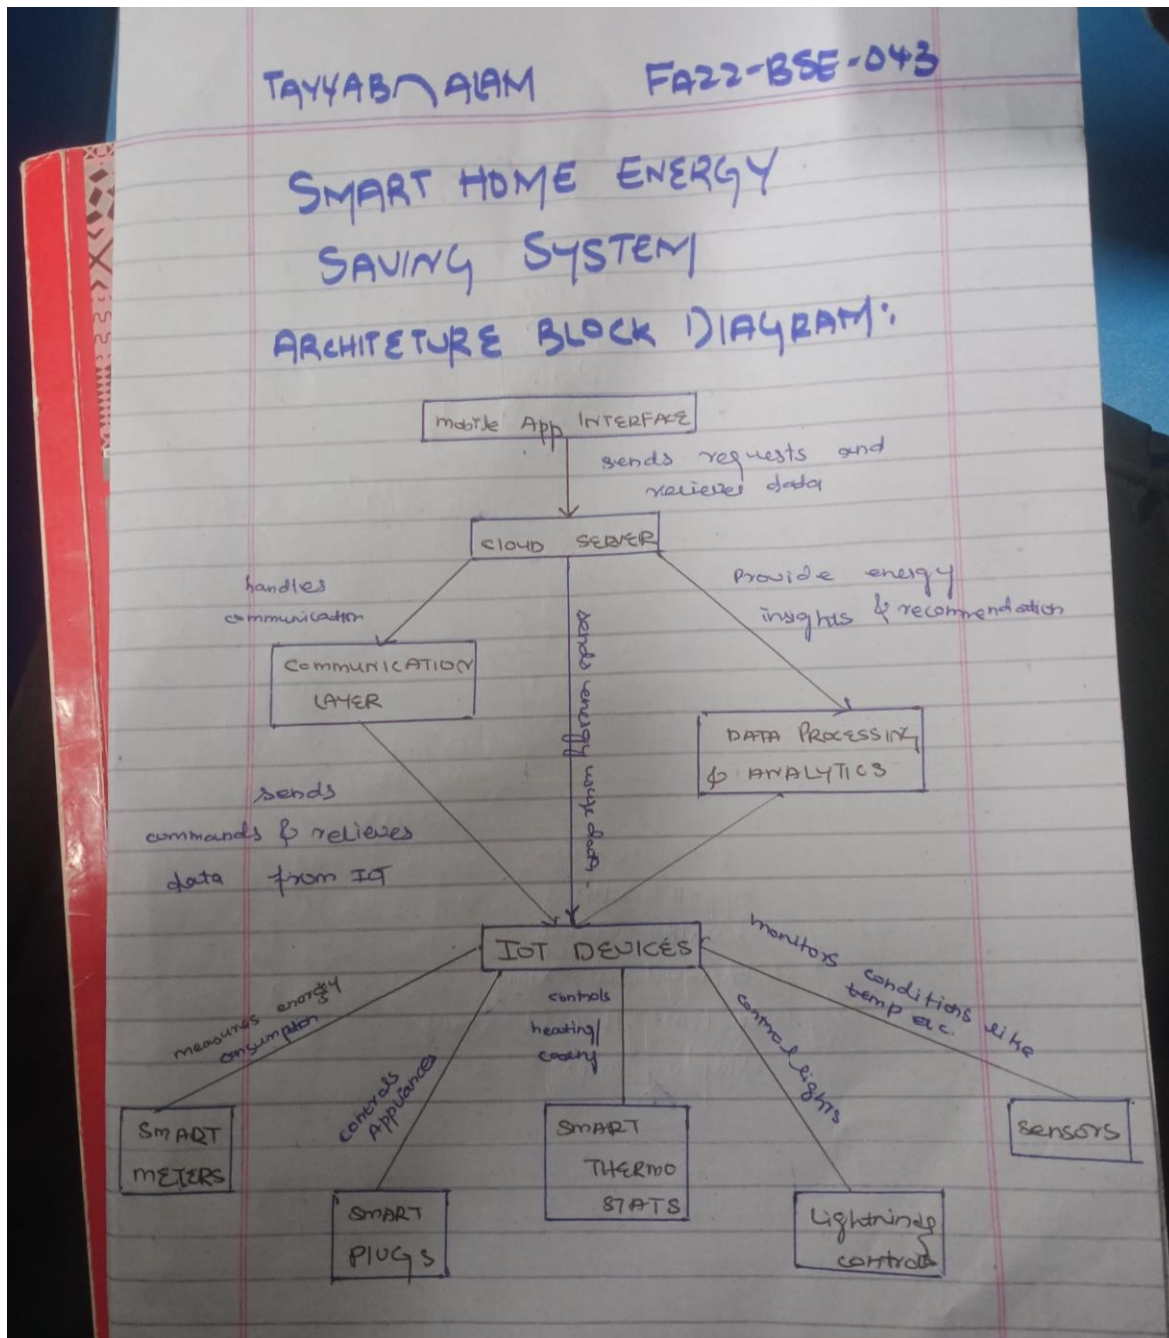 TAYYAB ALAM FA22-BSE-043
SMART HOME ENERGY
SAVING SYSTEM
ARCHITETURE BLOCK DIAGRAM:
Mobile App INTERFACE
sends requests and
relieves data
CLOUD SERVER
handles
communication
Provide energy
insights & recommendation
sends energy usage data
COMMUNICATION
LAYER
DATA PROCESSING
& ANALYTICS
sends
commands & relieves
data from IOT
IOT DEVICES
measures energy
consumption
controls
Appliances
controls
heating/
cooling
control lights
monitors conditions like
temp etc.
SMART
METERS
SMART
PLUGS
SMART
THERMO
STATS
Lightning
control
Sensors